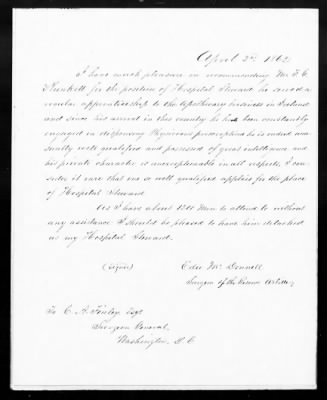 April 2nd 1862
I have much pleasure in recommending Mr. F. C.
Plunkett for the position of Hospital Steward he served a
regular apprenticeship to the Apothecary business in Ireland
and since his arrival in this country he has been constantly
engaged in dispensing Physicians prescriptions he is indeed unu-
sually well qualified and possessed of great intelligence and
his private character is unexceptionable in all respects, I con-
sider it rare that one so well qualified applies for the place
of Hospital Steward
As I have about 1200 Men to attend to without
any assistance I should be pleased to have him detached
as my Hospital Steward.
(signed)
Edw Mc Donnell
Surgeon of the Reserve Artillery
To C. A. Finley Esqr
Surgeon General,
Washington, D. C